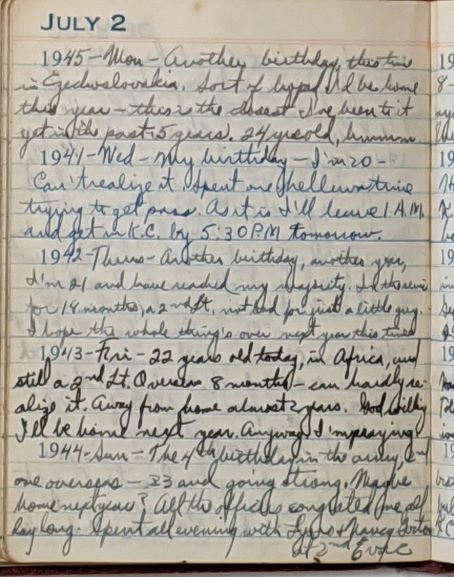 JULY 2
1945-Mon- Another birthday, this time
in Czechoslovakia. Sort of hoped I'd be home
this year - this is the closest I've been to it
yet in the past 5 years. 24 yrs old, hmmm
1941-Wed- My birthday - I'm 20 -
Can't realize it. Spent one hell uva time
trying to get pass. As it is I'll leave 1 A.M.
and get in K.C. by 5:30 P.M. tomorrow.
1942-Thurs- Another birthday, another year,
I'm 21 and have reached my majority. In the service
for 19 months, a 2nd Lt, not bad for just a little guy.
I hope the whole thing's over next year this time
1943-Fri- 22 years old today, in Africa, and
still a 2nd Lt. Overseas 8 months - can hardly re-
alize it. Away from home almost 2 years. God willing
I'll be home next year. Anyway I'm praying
1944-Sun- The 4th birthday in the army, 2nd
one overseas - 23 and going strong. Maybe
home next year? All the officers congrated me all
day long. Spent all evening with & Nancy
at 2nd Evac
19
8-
19
19
19